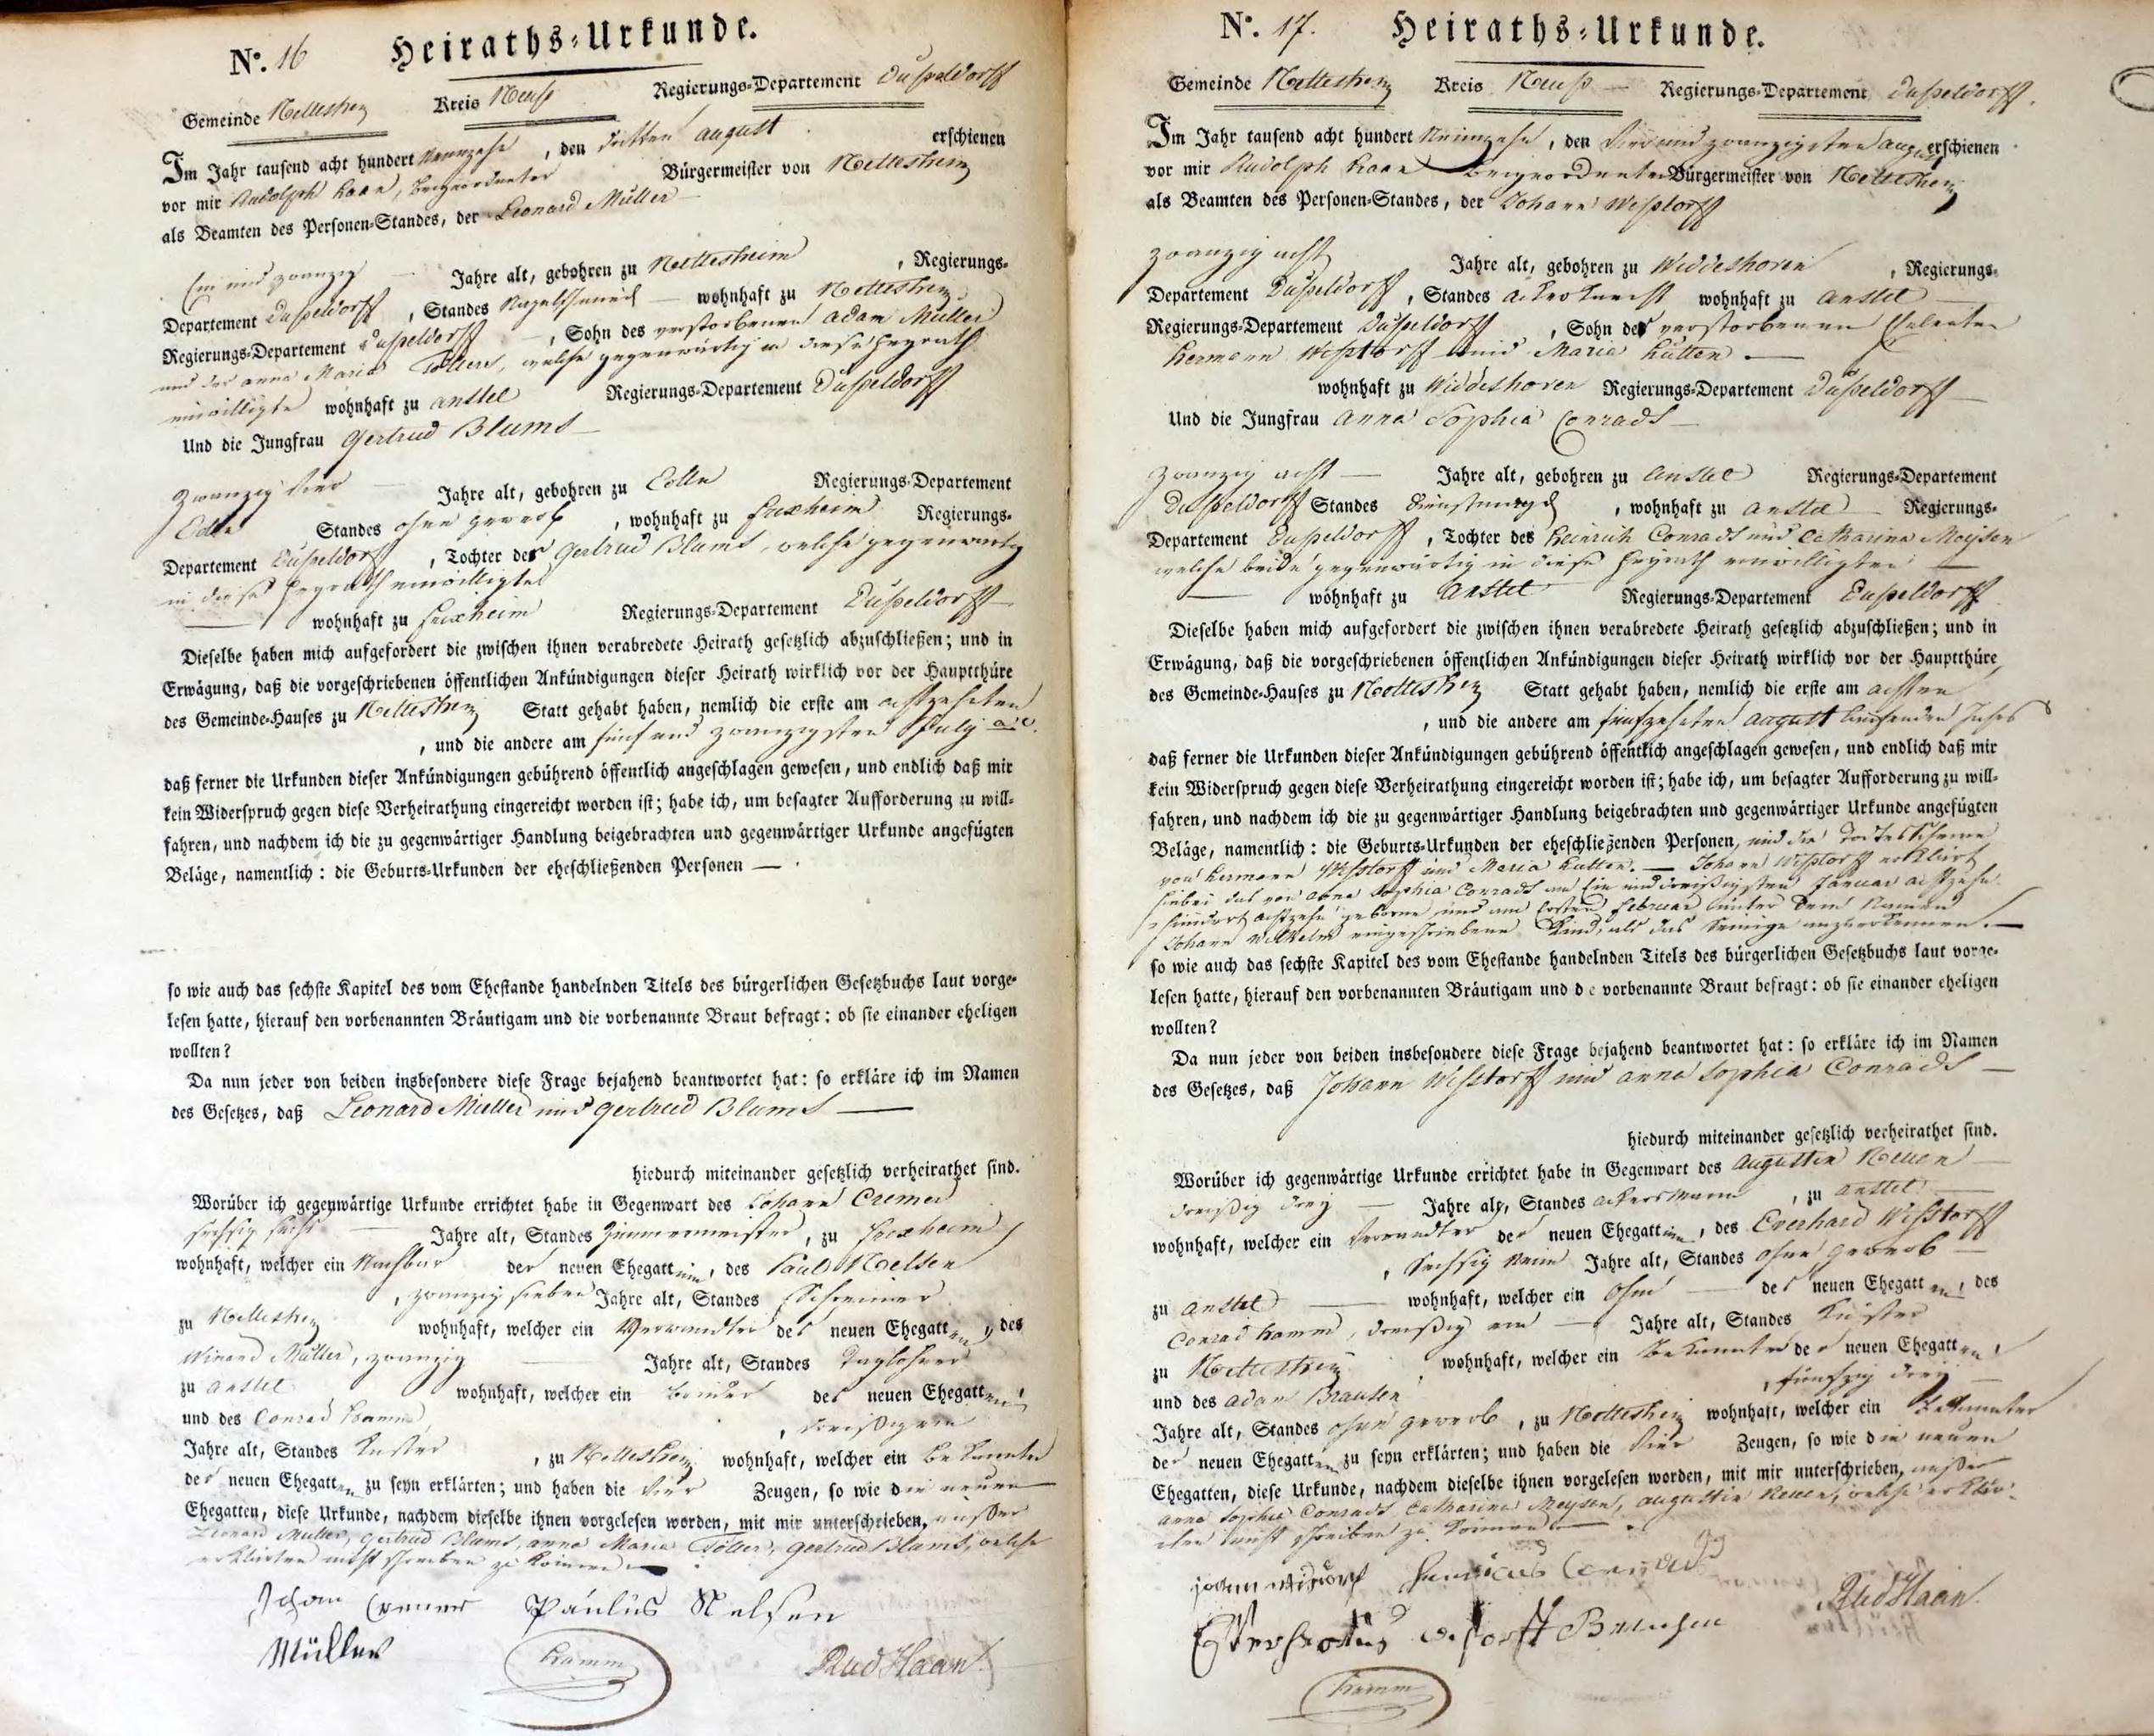 No. 16 Heiraths-Urkunde.
Gemeinde Nettesheim Kreis Neuß Regierungs-Departement Düsseldorff
Im Jahr tausend acht hundert Neunzehn, den dritten august erschienen
vor mir Rudolph Haan, Beigeordneter Bürgermeister von Nettesheim
als Beamten des Personen-Standes, der Leonard Müller
Ein und zwanzig Jahre alt, gebohren zu Nettesheim, Regierungs-
Departement Dusseldorff, Standes Nagelschmied wohnhaft zu Nettesheim
Regierungs-Departement Dusseldorff, Sohn des verstorbenen Adam Müller
und der anna Maria Töller, welche gegenwärtig in diese Heyrath
einwilligte wohnhaft zu anstel Regierungs-Departement Düsseldorff
Und die Jungfrau Gertrud Blums
zwanzig vier Jahre alt, gebohren zu Cölln Regierungs-Departement
Cölln Standes ohne gewerb, wohnhaft zu Frixheim Regierungs-
Departement Düsseldorff, Tochter der Gertrud Blums, welche gegenwärtig
in diese Heyrath einwilligte
wohnhaft zu Frixheim Regierungs-Departement Düsseldorff
Dieselbe haben mich aufgefordert die zwischen ihnen verabredete Heirath gesetzlich abzuschließen; und in
Erwägung, daß die vorgeschriebenen öffentlichen Ankündigungen dieser Heirath wirklich vor der Hauptthüre
des Gemeinde-Hauses zu Nettesheim Statt gehabt haben, nemlich die erste am achtzehnten
, und die andere am fünf und zwanzigsten July a. c.
daß ferner die Urkunden dieser Ankündigungen gebührend öffentlich angeschlagen gewesen, und endlich daß mir
kein Widerspruch gegen diese Verheirathung eingereicht worden ist; habe ich, um besagter Aufforderung zu will-
fahren, und nachdem ich die zu gegenwärtiger Handlung beigebrachten und gegenwärtiger Urkunde angefügten
Beläge, namentlich: die Geburts-Urkunden der eheschließenden Personen —
so wie auch das sechste Kapitel des vom Ehestande handelnden Titels des bürgerlichen Gesetzbuchs laut vorge-
lesen hatte, hierauf den vorbenannten Bräutigam und die vorbenannte Braut befragt: ob sie einander eheligen
wollten?
Da nun jeder von beiden insbesondere diese Frage bejahend beantwortet hat: so erkläre ich im Namen
des Gesetzes, daß Leonard Müller und Gertrud Blums —
hiedurch miteinander gesetzlich verheirathet sind.
Worüber ich gegenwärtige Urkunde errichtet habe in Gegenwart des Johann Cremer
sechzig sechs Jahre alt, Standes Zimmermeister, zu Frixheim
wohnhaft, welcher ein Nachbar der neuen Ehegattinn, des Paul Nelsen
, zwanzig sieben Jahre alt, Standes Schreiner
zu Nettesheim wohnhaft, welcher ein Verwandter des neuen Ehegatten, des
Winand Müller, zwanzig Jahre alt, Standes Taglöhner
zu anstel wohnhaft, welcher ein bruder des neuen Ehegatten,
und des Conrad Hamm, dreißig ein
Jahre alt, Standes Küster, zu Nettesheim wohnhaft, welcher ein Bekannter
der neuen Ehegatten zu seyn erklärten; und haben die vier Zeugen, so wie die neuen
Ehegatten, diese Urkunde, nachdem dieselbe ihnen vorgelesen worden, mit mir unterschrieben, außer
Leonard Müller, Gertrud Blums, anna Maria Töller, Gertrud Blums, welche
erklärten nicht schreiben zu können
Johan Cremer Paulus Nelsen
Müller Hamm Rud Haan
No. 17. Heiraths-Urkunde.
Gemeinde Nettesheim Kreis Neuß Regierungs-Departement Dußeldorff.
Im Jahr tausend acht hundert Neunzehn, den vier und zwanzigsten august erschienen
vor mir Rudolph Haan Beigeordneter Bürgermeister von Nettesheim
als Beamten des Personen-Standes, der Johann Wißtorff
zwanzig acht Jahre alt, gebohren zu Widdeshoven, Regierungs-
Departement Dußeldorff, Standes ackerknecht wohnhaft zu anstel
Regierungs-Departement Düsseldorff, Sohn der verstorbenen Eheleuten
Hermann Wißtorff und Maria Hütten. —
wohnhaft zu Widdeshoven Regierungs-Departement Düßeldorff
Und die Jungfrau anna Sophia Conrads —
zwanzig acht — Jahre alt, gebohren zu anstel Regierungs-Departement
Dusseldorff Standes Dienstmagd, wohnhaft zu anstel Regierungs-
Departement Dußeldorff, Tochter des Heinrich Conrads und Catharina Meysen
welche beide gegenwärtig in diese Heyrath einwilligten —
wohnhaft zu anstel Regierungs-Departement Dußeldorff
Dieselbe haben mich aufgefordert die zwischen ihnen verabredete Heirath gesetzlich abzuschließen; und in
Erwägung, daß die vorgeschriebenen öffentlichen Ankündigungen dieser Heirath wirklich vor der Hauptthüre
des Gemeinde-Hauses zu Nettesheim Statt gehabt haben, nemlich die erste am achten
, und die andere am fünfzehnten august laufenden Jahrs
daß ferner die Urkunden dieser Ankündigungen gebührend öffentlich angeschlagen gewesen, und endlich daß mir
kein Widerspruch gegen diese Verheirathung eingereicht worden ist; habe ich, um besagter Aufforderung zu will-
fahren, und nachdem ich die zu gegenwärtiger Handlung beigebrachten und gegenwärtiger Urkunde angefügten
Beläge, namentlich: die Geburts-Urkunden der eheschließenden Personen, und die Todtesscheine
von Hermann Wißtorff und Maria Hutten. — Johann Wißtorff erklärt
hiebei das von anna Sophia Conrads am Ein und dreißigsten Januar achtzehn
hundert achtzehn geborne und am Ersten Februar unter dem Namen
Johann Wilhelm eingeschriebene Kind, als das Seinige anzuerkennen. —
so wie auch das sechste Kapitel des vom Ehestande handelnden Titels des bürgerlichen Gesetzbuchs laut vorge-
lesen hatte, hierauf den vorbenannten Bräutigam und de vorbenannte Braut befragt: ob sie einander eheligen
wollten?
Da nun jeder von beiden insbesondere diese Frage bejahend beantwortet hat: so erkläre ich im Namen
des Gesetzes, daß Johann Wißtorff und anna Sophia Conrads —
hiedurch miteinander gesetzlich verheirathet sind.
Worüber ich gegenwärtige Urkunde errichtet habe in Gegenwart des Augustin
dreißig drey — Jahre alt, Standes ackersmann, zu anstel
wohnhaft, welcher ein Verwandter der neuen Ehegattinn, des Everhard Wißtorff
, sechszig neun Jahre alt, Standes ohne gewerb
zu anstel — wohnhaft, welcher ein Ohm des neuen Ehegatten, des
Conrad Hamm, dreißig ein — Jahre alt, Standes Küster
zu Nettesheim wohnhaft, welcher ein Bekannter der neuen Ehegatten,
und des adam Brausen, fünfzig drey
Jahre alt, Standes ohne gewerb, zu Nettesheim wohnhaft, welcher ein Bekannter
der neuen Ehegatten zu seyn erklärten; und haben die vier Zeugen, so wie die neuen
Ehegatten, diese Urkunde, nachdem dieselbe ihnen vorgelesen worden, mit mir unterschrieben, außer
anna Sophia Conrads Catharina Meysen, augustin, welche erklär-
ten nicht schreiben zu können
Conrads
Rud Haan
Hamm